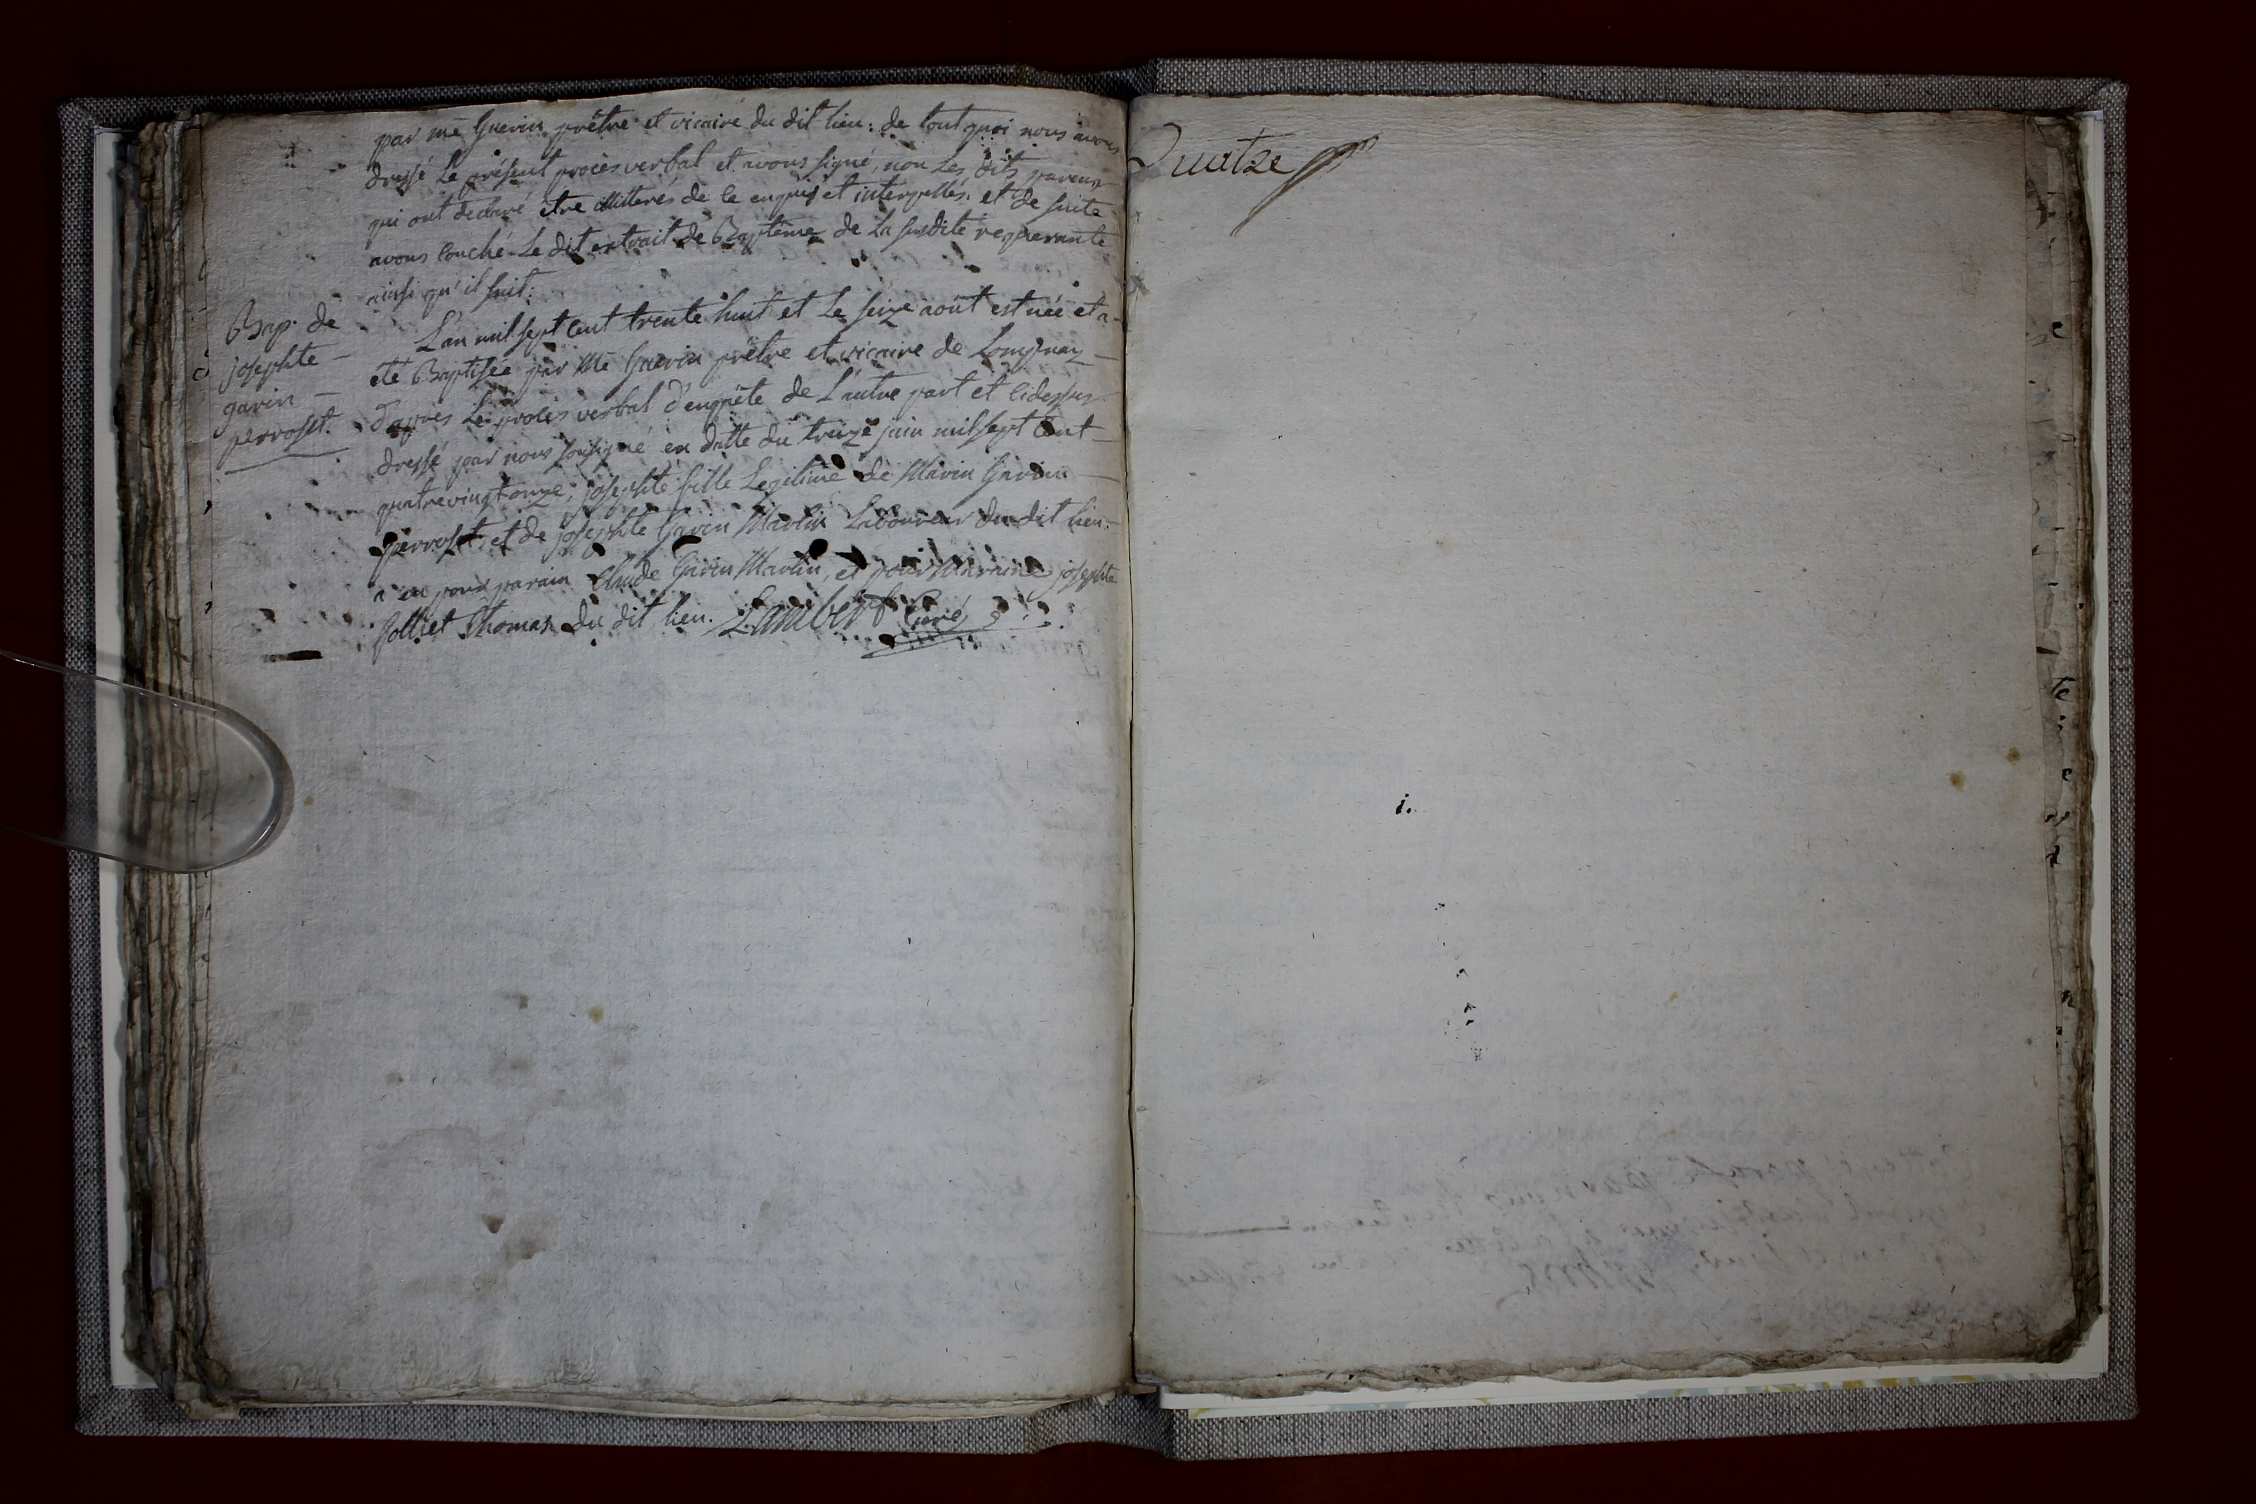 par me Guerin prêtre et vicaire du dit lieu: de tout quoi nous avons
dressé Le présent procès verbal et avons signé, non Les dits parens
qui ont déclaré être illitterés de ce enquis et interpellés. et de suite
avons couché Le dit extrait de Baptême de La susdite requerante
ainsi qu'il suit:
Bap. de
josephte
gavin
perroset.
L'an mil sept cent trente huit et Le seize août est née et a
été Baptisée par Me Guerin prêtre et vicaire de
d'apres Le proces verbal d'enquête de L'autre part et cidessus
dressé par nous soussigné en datte du treize juin mil sept cent
quatrevingt onze, josephte fille Legitime de Mavin Gavin
perroset et de josephte Gavin Martin Laboureur du dit lieu
a eu pour parain Claude Gavin Martin, et pour Maraine josephte
jolliet Thomas du dit lieu. Lambert Curé
Quatre
i.